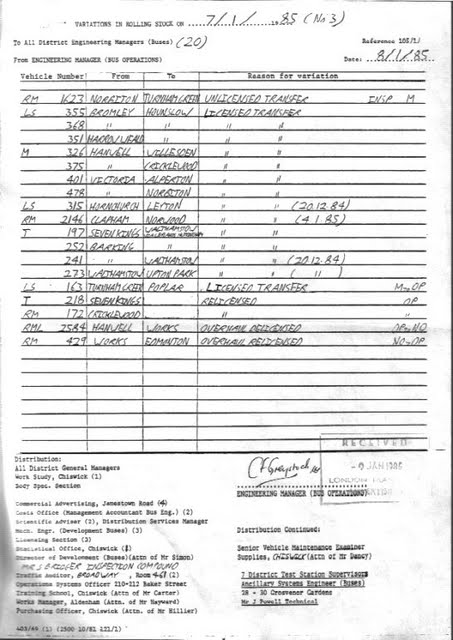 VARIATIONS IN ROLLING STOCK ON 7/1/1985 (No 3)
To All District Engineering Managers (Buses) (20) Reference 105/1/
From ENGINEERING MANAGER (BUS OPERATIONS) Date: 8/1/85
Vehicle Number From To Reason for variation
RM 1623 NORBITON TURNHAM GREEN UNLICENSED TRANSFER INSP M
LS 355 BROMLEY HOUNSLOW LICENSED TRANSFER
368 " " " "
351 HARROW WEALD " " "
M 326 HANWELL WILLESDEN " "
375 " CRICKLEWOOD " "
401 VICTORIA ALPERTON " "
478 " NORBITON " "
LS 315 HORNCHURCH LEYTON " " (20.12.84)
RM 2146 CLAPHAM NORWOOD " " (4.1.85)
T 197 SEVEN KINGS WALTHAMSTOW " "
252 BARKING " " "
241 " WALTHAMSTOW " " (20.12.84)
273 WALTHAMSTOW UPTON PARK " " ( " )
LS 163 TURNHAM GREEN POPLAR LICENSED TRANSFER M to OP
T 218 SEVEN KINGS RELICENSED OP
RM 172 CRICKLEWOOD " "
RML 2584 HANWELL WORKS OVERHAUL DELICENSED OP to NO
RM 429 WORKS EDMONTON OVERHAUL RELICENSED NO to OP
Distribution:
All District General Managers
Work Study, Chiswick (1)
Body Spec. Section
RECEIVED
JAN 1985
LONDON
ENGINEERING MANAGER (BUS OPERATIONS)
Commercial Advertising, Jamestown Road (4)
Costs Office (Management Accountant Bus Eng.) (2)
Scientific Adviser (2), Distribution Services Manager
Mech. Engr. (Development Buses) (3)
Licensing Section (2)
Statistical Office, Chiswick (1)
Director of Development (Buses)(Attn of Mr Simon)
MR S BRIDGER INSPECTION COMPOUND
Traffic Auditor, BROADWAY, Room 467 (2)
Operations Systems Officer 210-212 Baker Street
Training School, Chiswick (Attn of Mr Carter)
Works Manager, Aldenham (Attn of Mr Hayward)
Purchasing Officer, Chiswick (Attn of Mr Hillier)
Distribution Continued:
Senior Vehicle Maintenance Examiner
Supplies, CHISWICK (Attn of Mr Dancy)
7 District Test Station Supervisors
Ancillary Systems Engineer (Buses)
28 - 30 Grosvenor Gardens
Mr J Powell Technical